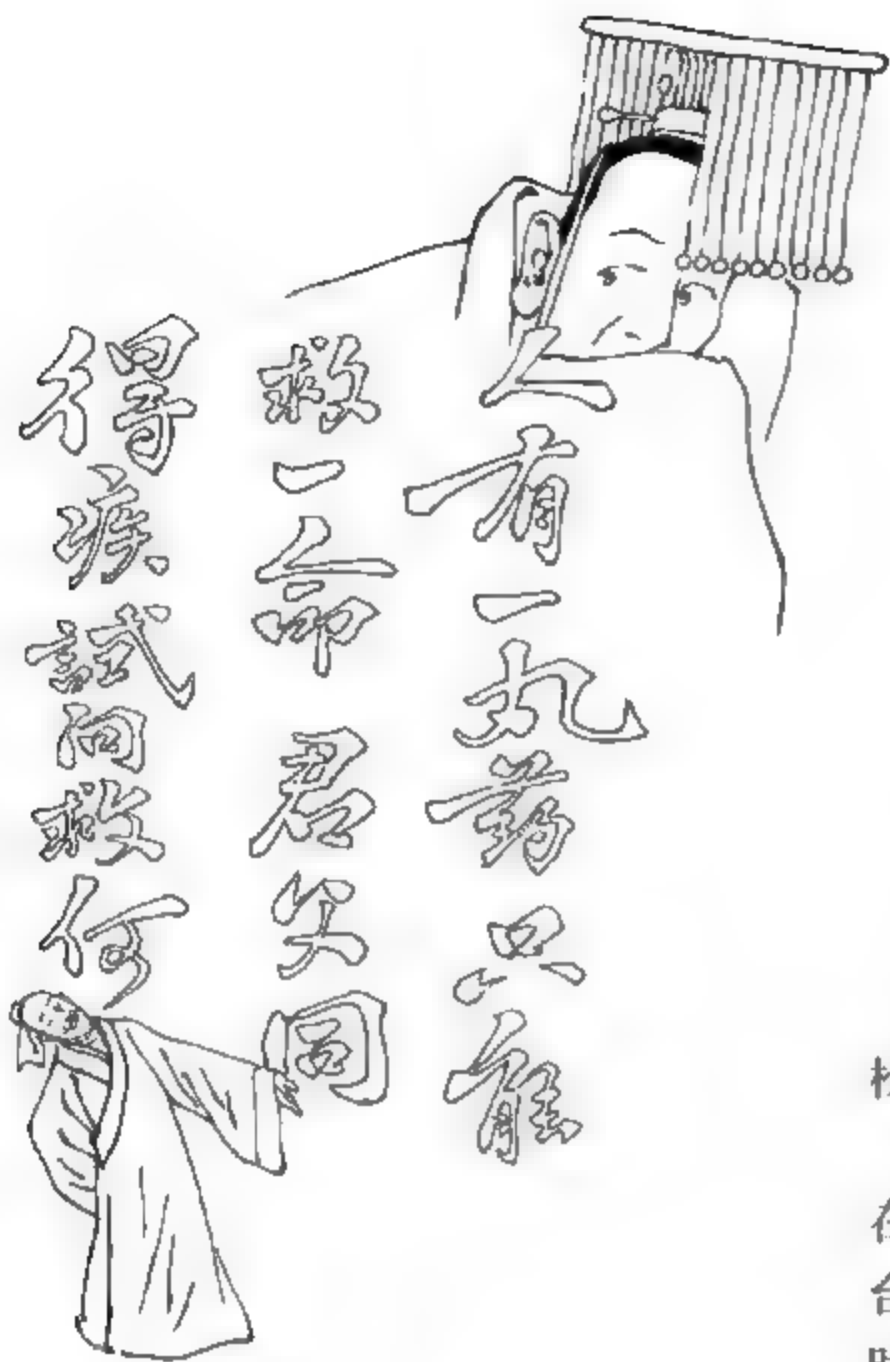 人有一丸药只能
救一命君父同
得疾試问救何